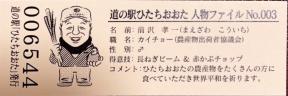 006544
道の駅「ひたちおおた」発行
道の駅ひたちおおた 人物ファイル No.003
名 前：前沢 孝一（まえざわ こういち）
職 種：カイチョー（農産物出荷者協議会）
性 別：♂
得意技：長ねぎビーム & 赤かぶチョップ
コメント：ひたちおおたの農産物をたくさんの方に
食べていただき世界平和を祈ります。